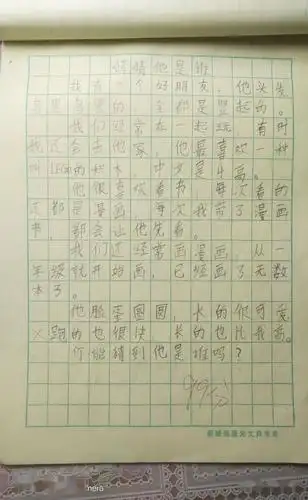 猜猜他是谁
我有一个好朋友,他头发
是黑色的,全都是竖起的。
我们经常在一起玩,有时
我还会去他家,他最喜欢一种
叫LEGO的积木,中文是乐高。
他很喜欢看书,每次看的
又都是漫画,每次我带了漫画
书,都会让他先看。
我们还经常画漫画,从一
年级就开始画,已经画了无数
本了。
他脸蛋圆圆,长的很可爱
跑的也很快,长的也比我高。
你能猜到他是谁吗?
99分
nero